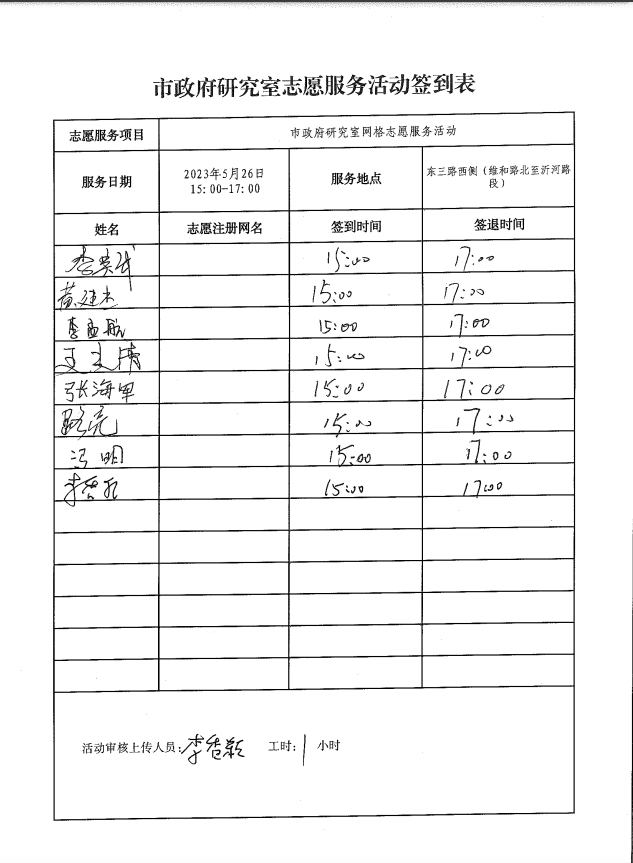 市政府研究室志愿服务活动签到表
志愿服务项目 市政府研究室网格志愿服务活动
服务日期 2023年5月26日 15:00-17:00 服务地点 东三路西侧（维和路北至沂河路段）
姓名 志愿注册网名 签到时间 签退时间
15:00 17:00
黄建杰 15:00 17:00
李孟航 15:00 17:00
王文清 15:00 17:00
张海军 15:00 17:00
路亮 15:00 17:00
冯明 15:00 17:00
15:00 17:00
活动审核上传人员: 工时: 1 小时